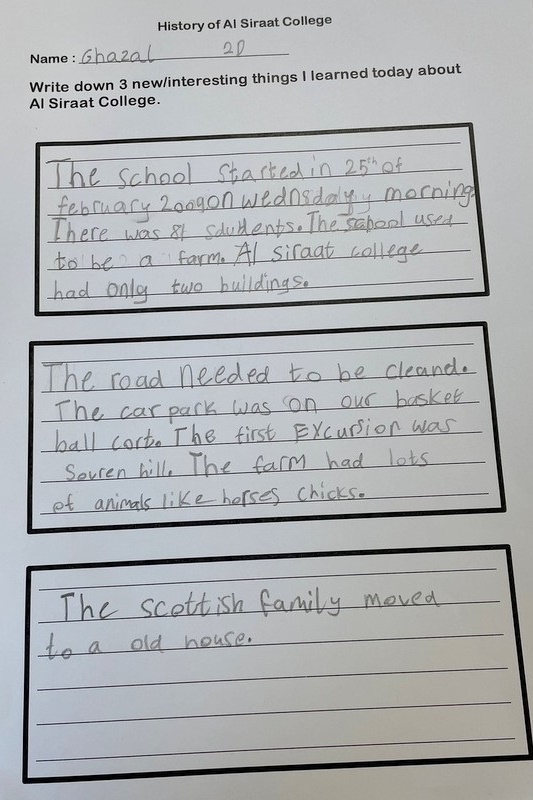 History of Al Siraat College
Name : Ghazal 2D
Write down 3 new/interesting things I learned today about
Al Siraat College.
The school started in 25th of
february 2009on wednsdayy morning.
There was 81 sdudents. The school used
to be a farm. Al siraat college
had only two buildings.
The road needed to be cleand.
The car park was on our basket
ball cort. The first Excursion was
Souren hill. The farm had lots
of animals like horses chicks.
The scottish family moved
to a old house.